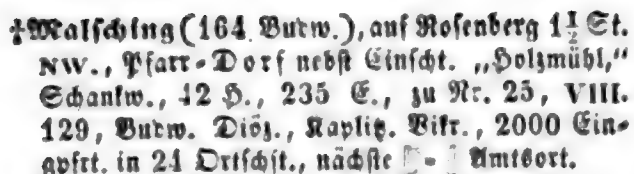 ‡Malsching (164 Budw.), auf Rosenberg 1½ St.
NW., Pfarr-Dorf nebst Einscht. „Holzmühl,"
Schankw., 42 H., 235 E., zu Nr. 25, VIII.
129, Budw. Diöz., Kaplitz. Vikr., 2000 Ein-
gpfrt. in 21 Ortschst., nächste Amtsort.